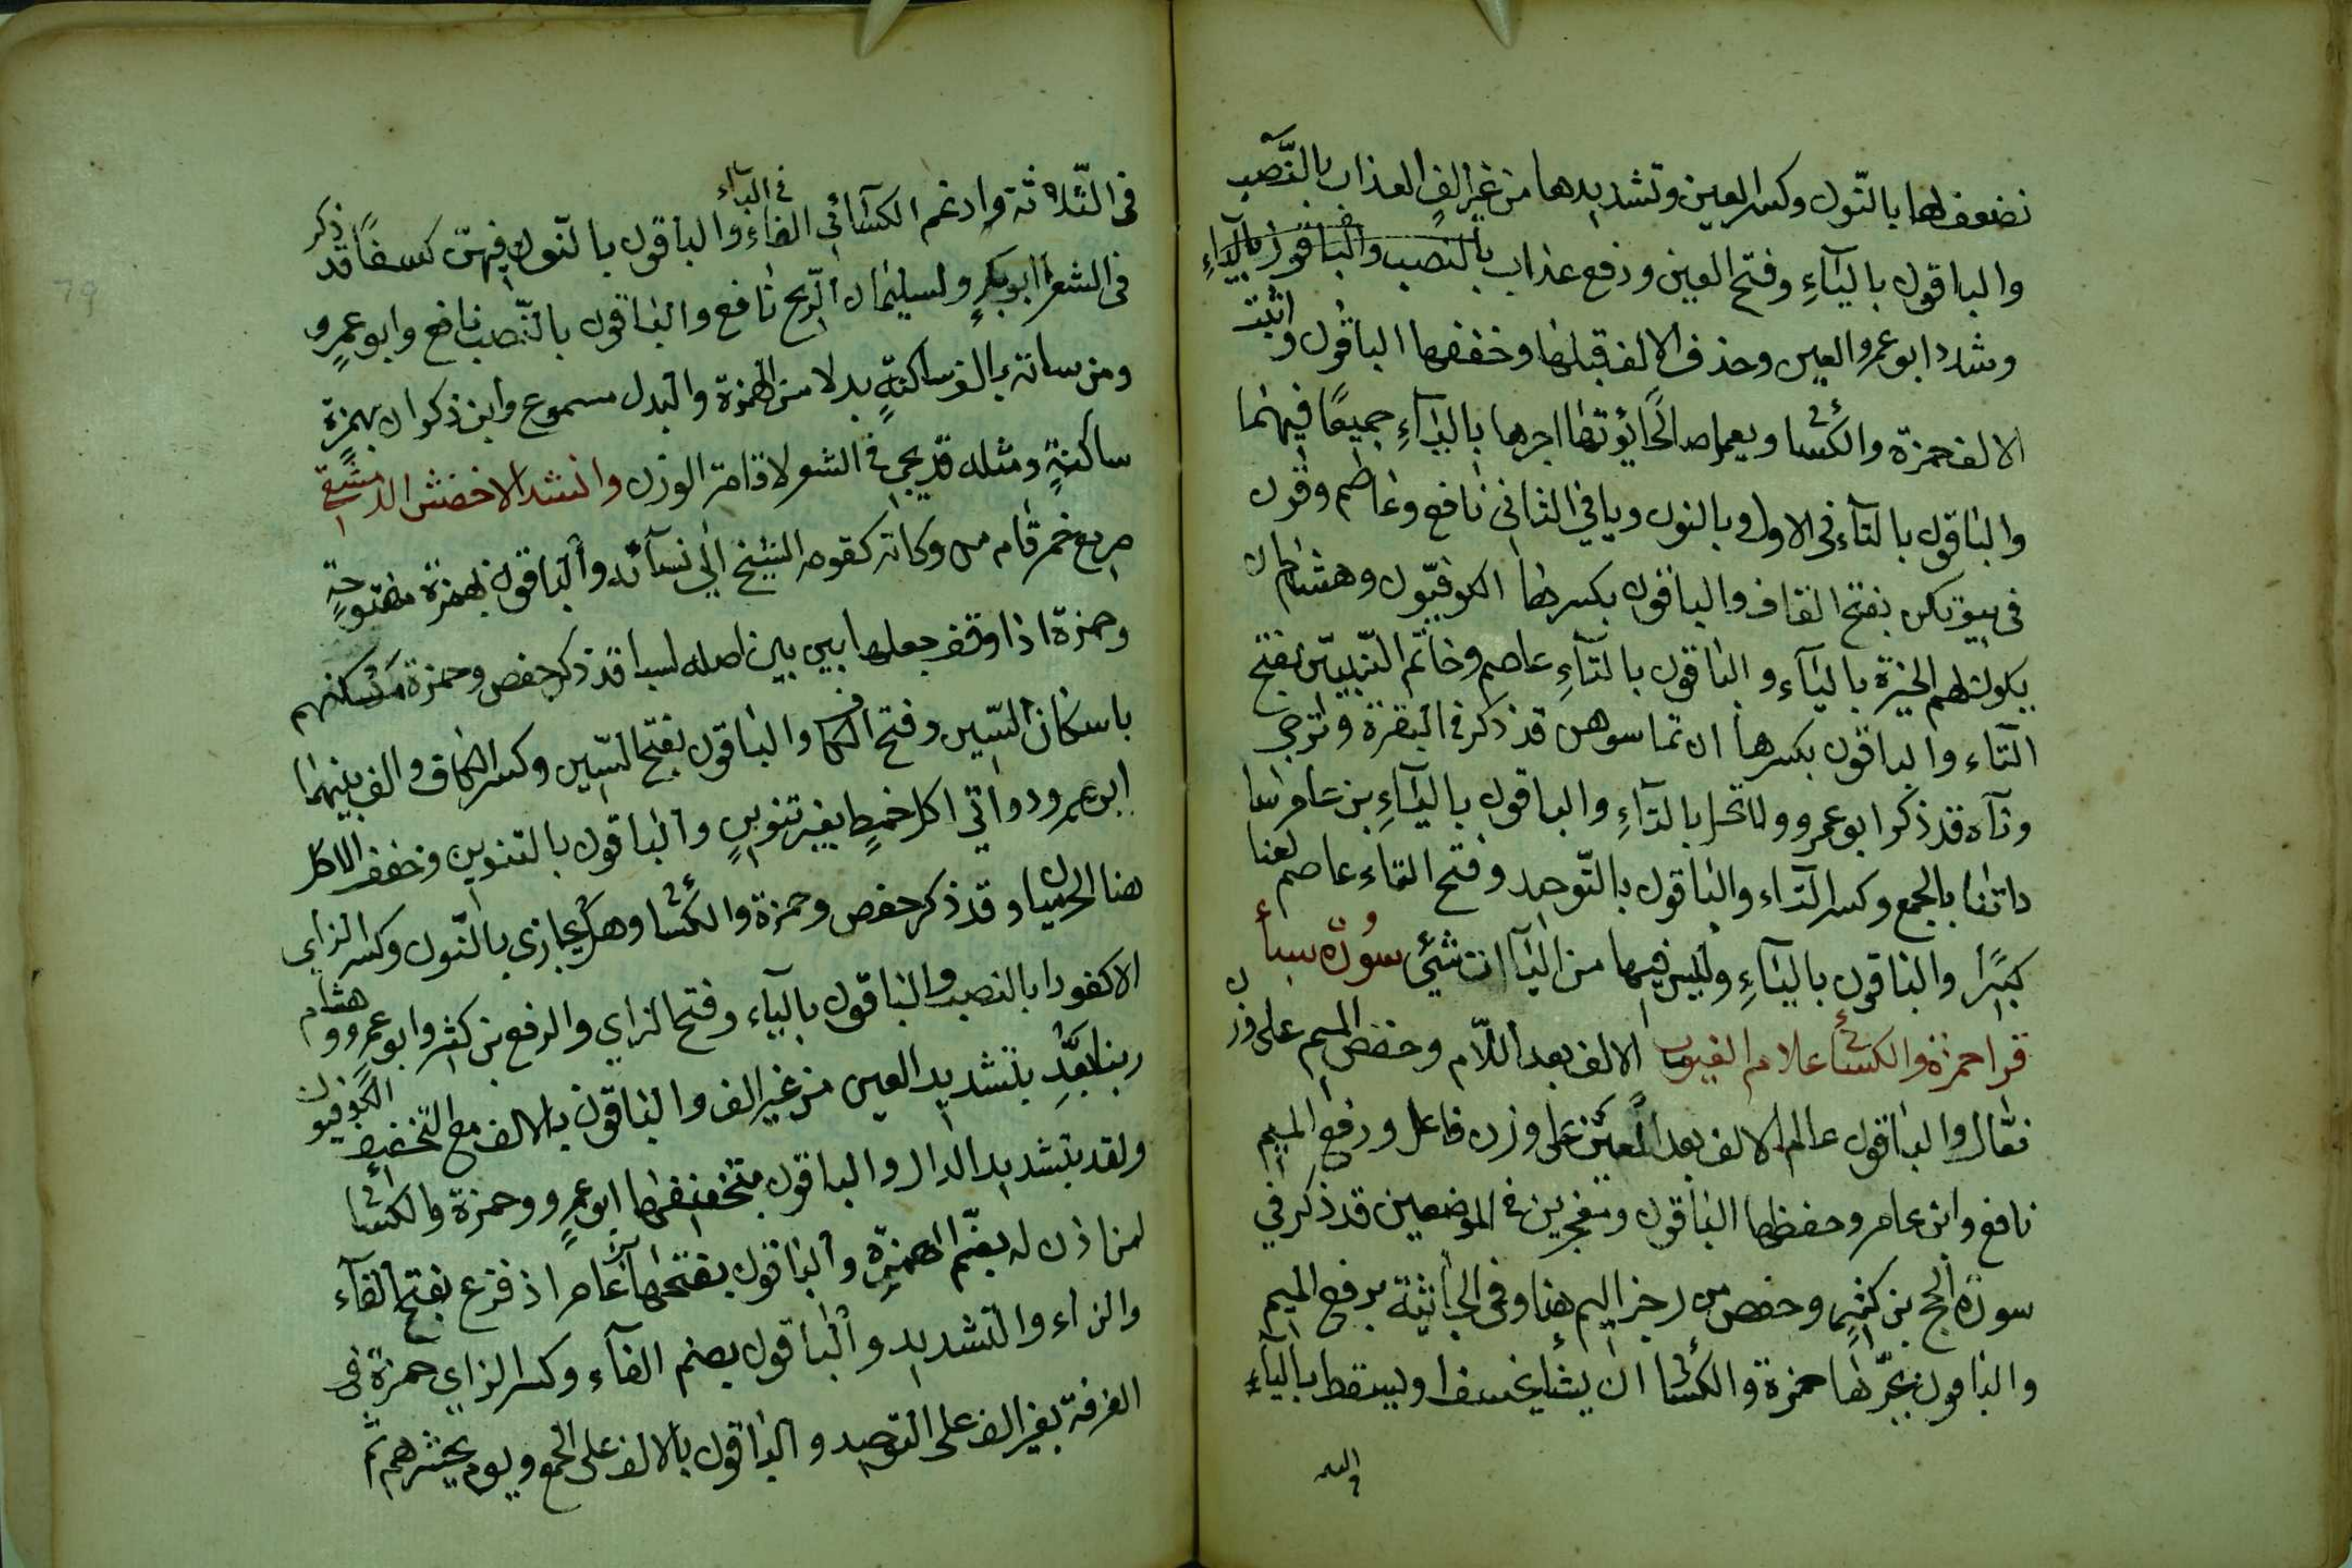 نضعف لها بالنّون وكسر العين وتشديدها من غير الفٍ العذاب بالنَّصب
والباقون باليآءِ وفتح العين ورفع عذاب بالنصب والباقون باليآءِ
وشدد ابو عمرو العين وحذف الالف قبلها وخففها الباقون واثبت
الالف حمزة والكسائي ويعمل صالحًا يؤتها اجرها باليآءِ جميعًا فيهما
والباقون بالتآء في الاول وبالنون ويا في الثاني نافع وعاصم وقرن
في بيوتكن بفتح القاف والباقون بكسرها الكوفيّون وهشام ان
يكون لهم الخيرة باليآء والباقون بالتآءِ عاصم وخاتَم النّبييّن بفتح
التاء والباقون بكسرها ان تماسوهن قد ذكر في البقرة وترجي
وتآه قد ذكر ابو عمرو ولا تحل بالتآءِ والباقون باليآءِ بن عامر سا
داتنا بالجمع وكسر التاء والباقون بالتّوحد وفتح التاء عاصم لعنا
كبيًرا والباقون باليآءِ وليس فيها من الياآت شيئ سورة سبأ
قرا حمزة والكسائي علام الغيوب الالف بعد اللّام وخفض الميم على وزن
فعّال والباقون عالم الالف بعد العين على وزن فاعل ورفع الميم
نافع وابن عامر وحفظها الباقون ومعجزين في الموضعين قد ذكر في
سورة الحج بن كثيرٍ وحفص من رجز اليم هنا وفي الجاثية برفع الميم
والباقون بجرّها حمزة والكسائي ان يشأ يخسف او يسقط باليآءِ
في الثّلاثة وادغم الكسائي الفاء في البآء والباقون بالنّون فيهنّ كسفًا قد ذكر
في الشعرا ابو بكرٍ ولسليمان الرّيح نافع والباقون بالنّصب نافع وابو عمرٍو
ومن ساته بالف ساكنةٍ بدلا من الهمزة والبدل مسموع وابن ذكوان بهمزةٍ
ساكنةٍ ومثله قد يجي في الشعر لاقامة الوزن وانشد الاخفش الدمشقي
صريع خمر قام من وكاته كقومه الشيخ الي نسآئه والباقون بهمزة مفتوحةٍ
وحمزة اذا وقف جعلها بين بين اصله لسبا قد ذكر حفص وحمزة مسكنهم
باسكان السّين وفتح الكاف والباقون بفتح السّين وكسر الكاف والف بينهما
ابو عمرو دواتي اكل خمطٍ بغير تنوينٍ والباقون بالتنوين وخفف الاكل
هنا الحرميان وقد ذكر حفص وحمزة والكسائي وهل يجازي بالنّون وكسر الزاي
الا كفورا بالنصب والباقون باليآء وفتح الزاي والرفع بن كثير وابو عمرٍو وهشام
ربنا بَعِّدِ بتشديد العين من غير الف والباقون بالالف مع التخفيف الكوفيون
ولقد بتشديد الدال والباقون بتخفيفها ابو عمرٍو وحمزة والكسائي
لمن اذن له بضّم الهمزةِ والباقون بفتحها ابن عامر اذ فزع بفتح الفآء
والزاء والتشديد والباقون بضم الفآء وكسر الزاي حمزة في
الغرفة بغير الف على التوحيد والباقون بالالف على الجمع ويوم يحشرهم ثم